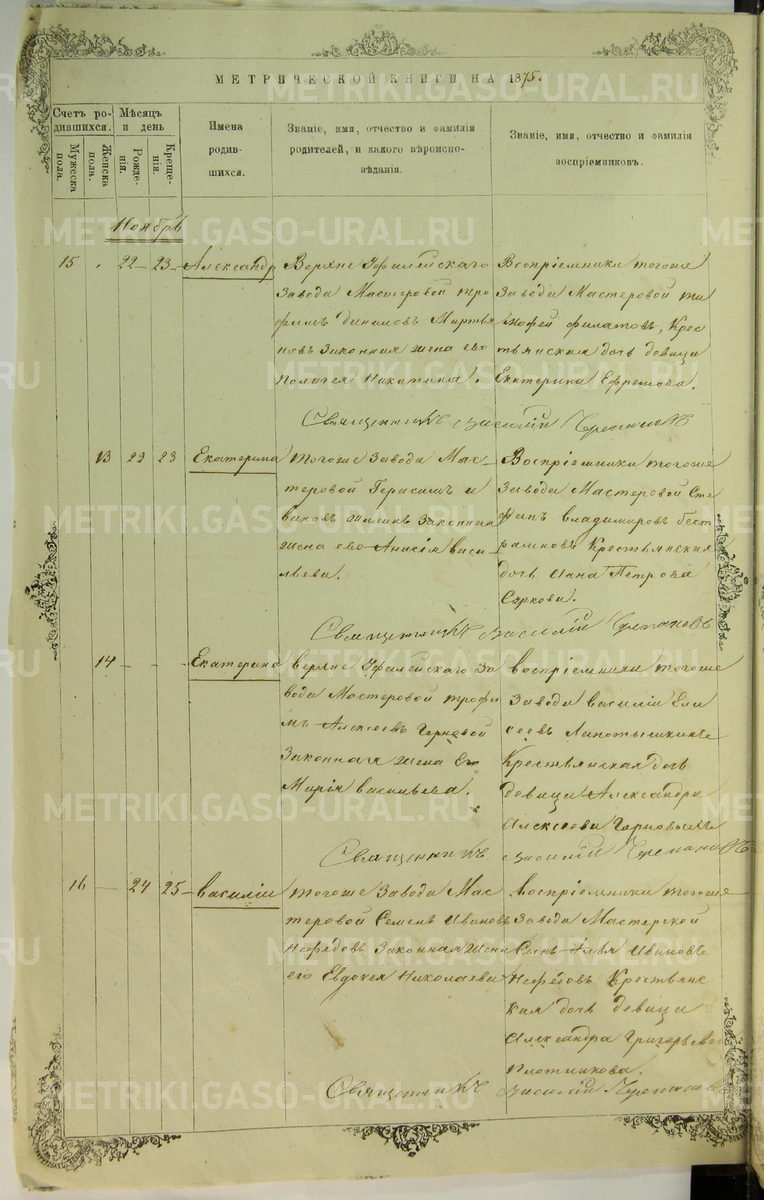 МЕТРИЧЕСКОЙ КНИГИ НА 1875.
Счетъ родившихся.
Мужеска пола.
Женска пола.
Мѣсяцъ и день
Рожденія.
Крещенія.
Имена родившихся.
Званіе, имя, отчество и фамилія родителей, и какого вѣроисповѣданія.
Званіе, имя, отчество и фамилія воспріемниковъ.
Ноябрь
15 22 23 Александр
Верхне Уфалейскаго
Завода Мастеровой Тро
фимъ Мартья
новъ Законная жена его
Пелагея Никитина.
Воспріемники тогоже
Завода Мастеровой Ти
мофей Филатовъ, Крес
тьянская дочь девица
Екатерина Ефремова.
Священникъ Василій Черепановъ
13 22 23 Екатерина
Тогоже Завода Мас
теровой Герасимъ И
вановъ Законная
жена его Анисія Васи
льева.
Воспріемники тогоже
Завода Мастеровой Сте
фанъ Владимировъ
Крестьянская
дочь Анна Петрова
Священникъ Василій Черепановъ
14 - - - Екатерина
Верхне Уфалейскаго За
вода Мастеровой Трофи
мъ Алексеевъ Черновой
Законная жена Его
Марія Васильева.
воспріемники тогоже
Завода Василій Ели
сеевъ
Крестьянская дочь
девица Александра
Алексеева Черновыхъ
Священникъ Василій Черепановъ
16 - 24 25 Василій
тогоже Завода Мас
теровой Семенъ Ивановъ
Нефедовъ Законная жена
его Евдокея Николаева
воспріемники тогоже
Завода Мастерской
Сынъ Илья Ивановъ
Нефедовъ Крестьянс
кая дочь девица
Александра Григорьева
Плотникова.
Священникъ Василій Черепановъ
METRIKI.GASO-URAL.RU